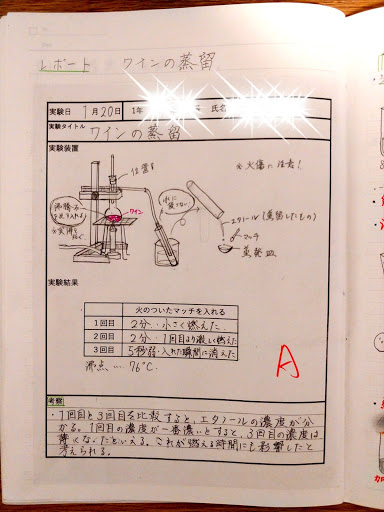 レポート ワインの蒸留
実験日 1月20日 1年 氏名
実験タイトル ワインの蒸留
実験装置
位置を
※火傷に注意!
沸騰石
を入れる
※実験を
ワイン
水に
エタノール(蒸留したもの)
マッチ
蒸発皿
実験結果
火のついたマッチを入れる
1回目 2分…小さく燃えた
2回目 2分…1回目より激しく燃えた
3回目 5秒弱…入れた瞬間に消えた
沸点…76℃
A
考察
・1回目と3回目を比較すると、エタノールの濃度が分
かる。1回目の濃度が一番濃いとすると、3回目の濃度は
薄くなったといえる。これが燃える時間にも影響したと
考えられる。